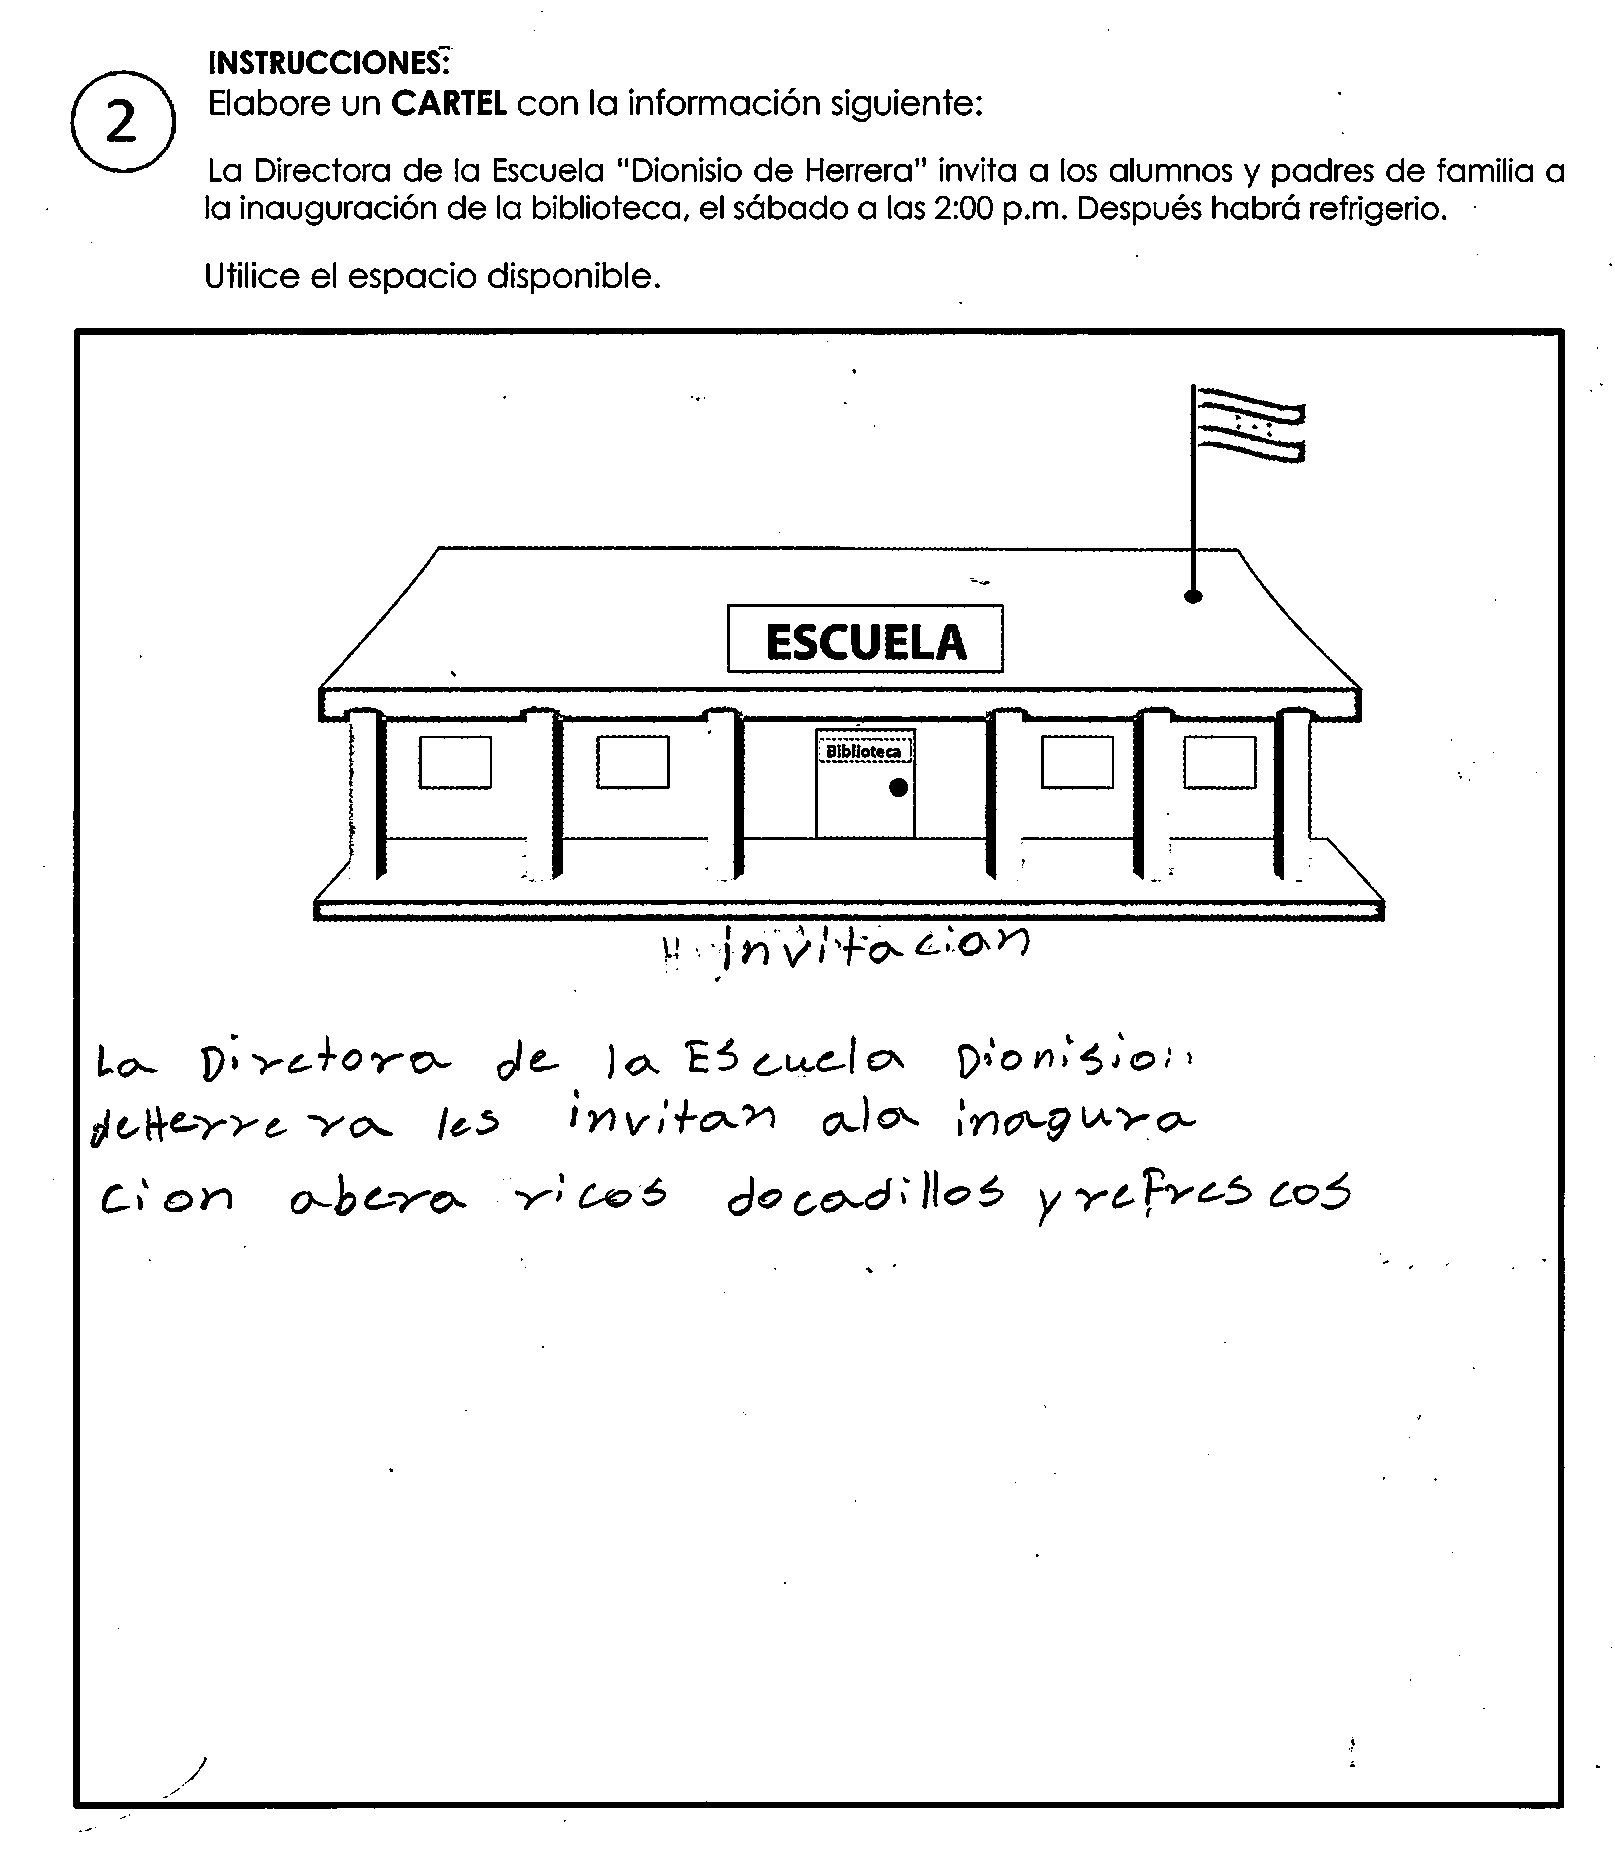 INSTRUCCIONES:
2
Elabore un CARTEL con la información siguiente:
La Directora de la Escuela "Dionisio de Herrera" invita a los alumnos y padres de familia a
la inauguración de la biblioteca, el sábado a las 2:00 p.m. Después habrá refrigerio.
Utilice el espacio disponible.
ESCUELA
Biblioteca
invitacion
La Dirctora de la Escuela Dionision
deHerrera les invitan ala inagura
cion abera ricos docadillos y refrescos